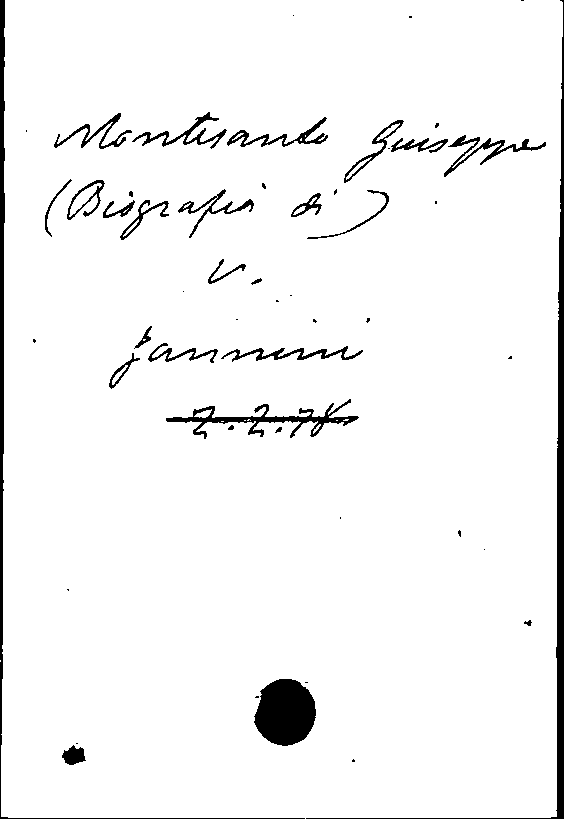 Montesanto Giuseppe
(Biografia di)
V.
Jannini
2.2.78